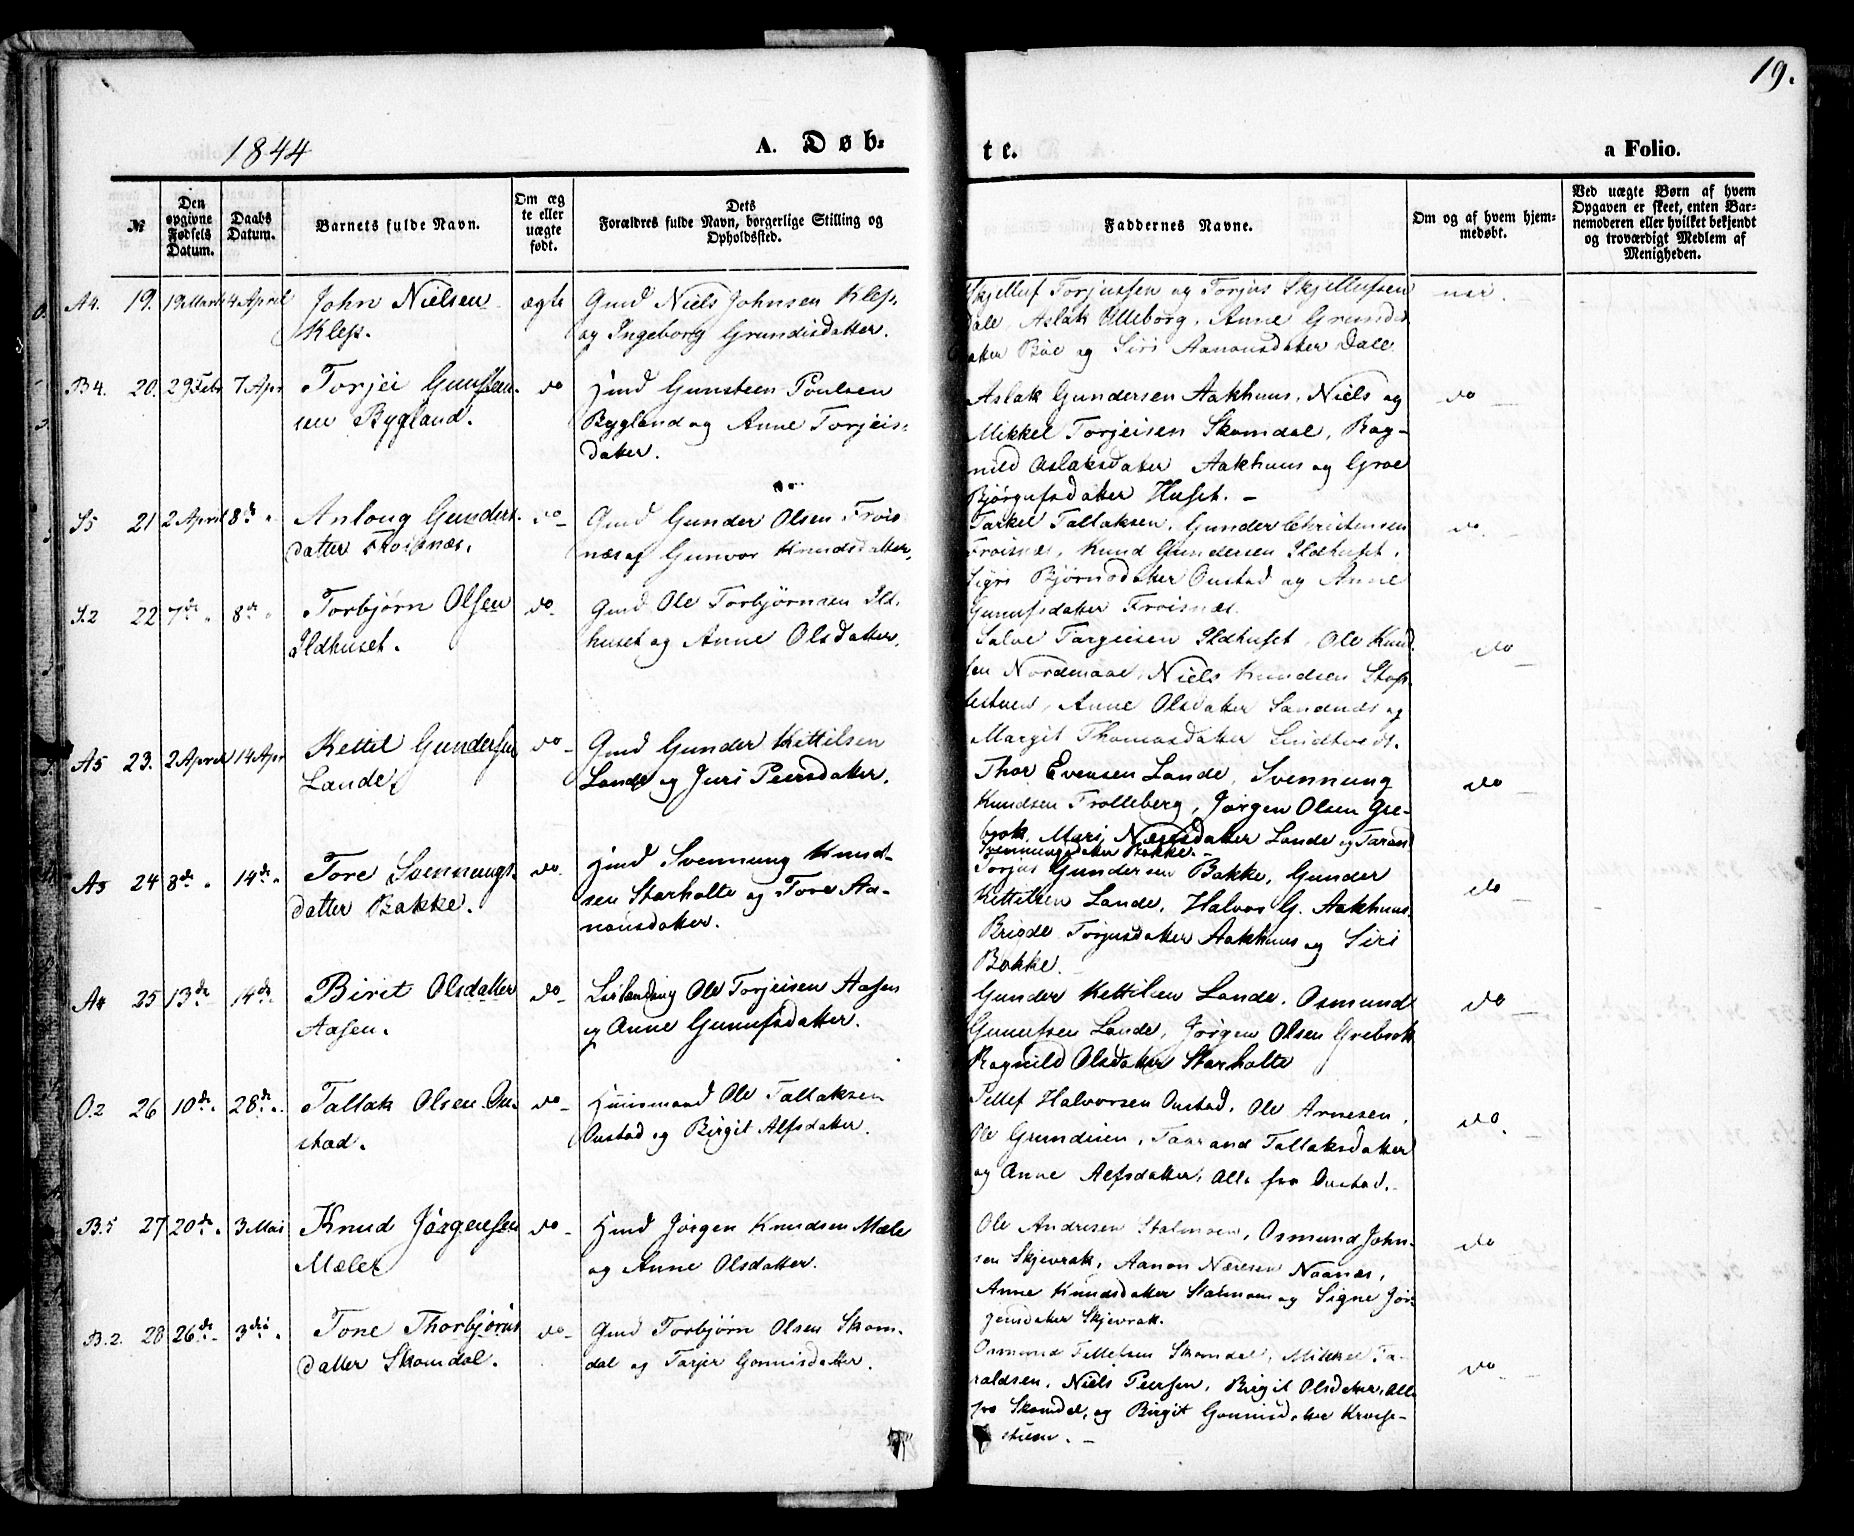 19.
1844
A. Døb-
te.
a Folio.
№
Den opgivne Fødsels Datum.
Daabs Datum.
Barnets fulde Navn.
Om ægte eller uægte født.
Dets Forældres fulde Navn, borgerlige Stilling og Opholdssted.
Faddernes Navne.
Om og af hvem hjemmedøbt.
Ved uægte Børn af hvem Opgaven er skeet, enten Barnemoderen eller hvilket bekjendt og troværdigt Medlem af Menigheden.
A4. 19. 19 Marts 4 April John Nielsen ægte Gmd Niels Johnsen Klep
Klep. og Ingeborg Grundisdatter.
Torjussen og Torjus Skjellufsen
dale, Aslak Ulleborg, Anne Grundis
Bøe og Siri Aanonsdatter Dale
B4. 20. 29 Febr 7 Apr Torjei Gunsteen- do Hmd Gunsteen Poulsen
sen Bygland. Bygland og Anne Torjeis-
datter.
Aslak Gundersen Aakhuus, Niels og do
Mikkel Torjeisen Skomdal, Rag-
nild Aslaksdatter Aakhuus og Groe
Bjørgufsdatter Huset. -
S5 21 2 April 8de " Anloug Gunders- do Gmd Gunder Olsen Frois
datter Froisnæs. næs og Gunvor Knudsdatter.
Tarkel Tallaksen, Gunder Christensen do.
Froisnæs, Knud Gundersen Ildhuset.
Sigri Bjørnsdatter Oustad og Anne
Gunufsdatter Froisnæs.
S.2 22 7de " 8de " Torbjørn Olsen do. Gmd Ole Torbjørnsen Ild-
Ildhuset. huset og Anne Olsdatter.
Salve Targeisen Ildhuset, Ole Knud- do
sen Nordmaae, Niels Knudsen
Anne Olsdatter Sandnæs og
Margit Thomasdatter
A5 23. 2 April 14 Apr Kettil Gundersen do Gmd Gunder Kettilsen
Lande. Lande og Juri Peersdatter.
Thor Evensen Lande, Svennung do
Knudsen Trolleberg, Jørgen Olsen Gre-
brok, Mari Næresdatter Lande og
Svennungsdatter Bakke. -
A3 24 8de " 14de " Tore Svennungs- do. Hmd Svennung Knud-
datter Bakke. sen Starholte og Tore Aa-
nonsdatter.
Torjus Gundersen Bakke, Gunder do
Kettilsen Lande, Halvor G. Aakhuus
Torjusdatter Aakhuus og Siri
Bakke.
A4 25 13de 14de Birit Olsdatter do Ole Torjeisen Aasen
Aasen. og Anne Gunufsdatter.
Gunder Kettilsen Lande, Osmund do
Gunufsen Lande, Jørgen Olsen Grebrok
Ragnild Olsdatter Starholte
O.2 26 10de " 28de " Tallak Olsen Ou- do Huusmand Ole Tallaksen
stad. Oustad og Birgit Alfsdatter.
Tellef Halvorsen Oustad, Ole Arnesen, do.
Ole Grundesen, Taarand Tallaksdatter
og Anne Alfsdatter, Alle fra Oustad.
B.5 27 20de " 3 Mai Knud Jørgensen do Hmd Jørgen Knudsen Mæle
Mæle. og Anne Olsdatter.
Ole Andresen Stalmoen, Osmund John- do
sen Skjevrak, Aanon Næresen Naanæs,
Anne Knudsdatter Stalmoen og Signe Jør-
gensdatter Skjevrak.
B.2. 28 26de 3die " Tone Thorbjørns do Gmd Torbjørn Olsen Skom-
datter Skomdal. dal og Tarjer Gonnisdatter.
Osmund Tellefsen Skomdal, Mikkel Ta- do
raldsen, Niels Peersen, Birgit Olsdatter, Alle
fra Skomdal, og Birgit Gonnisdatter